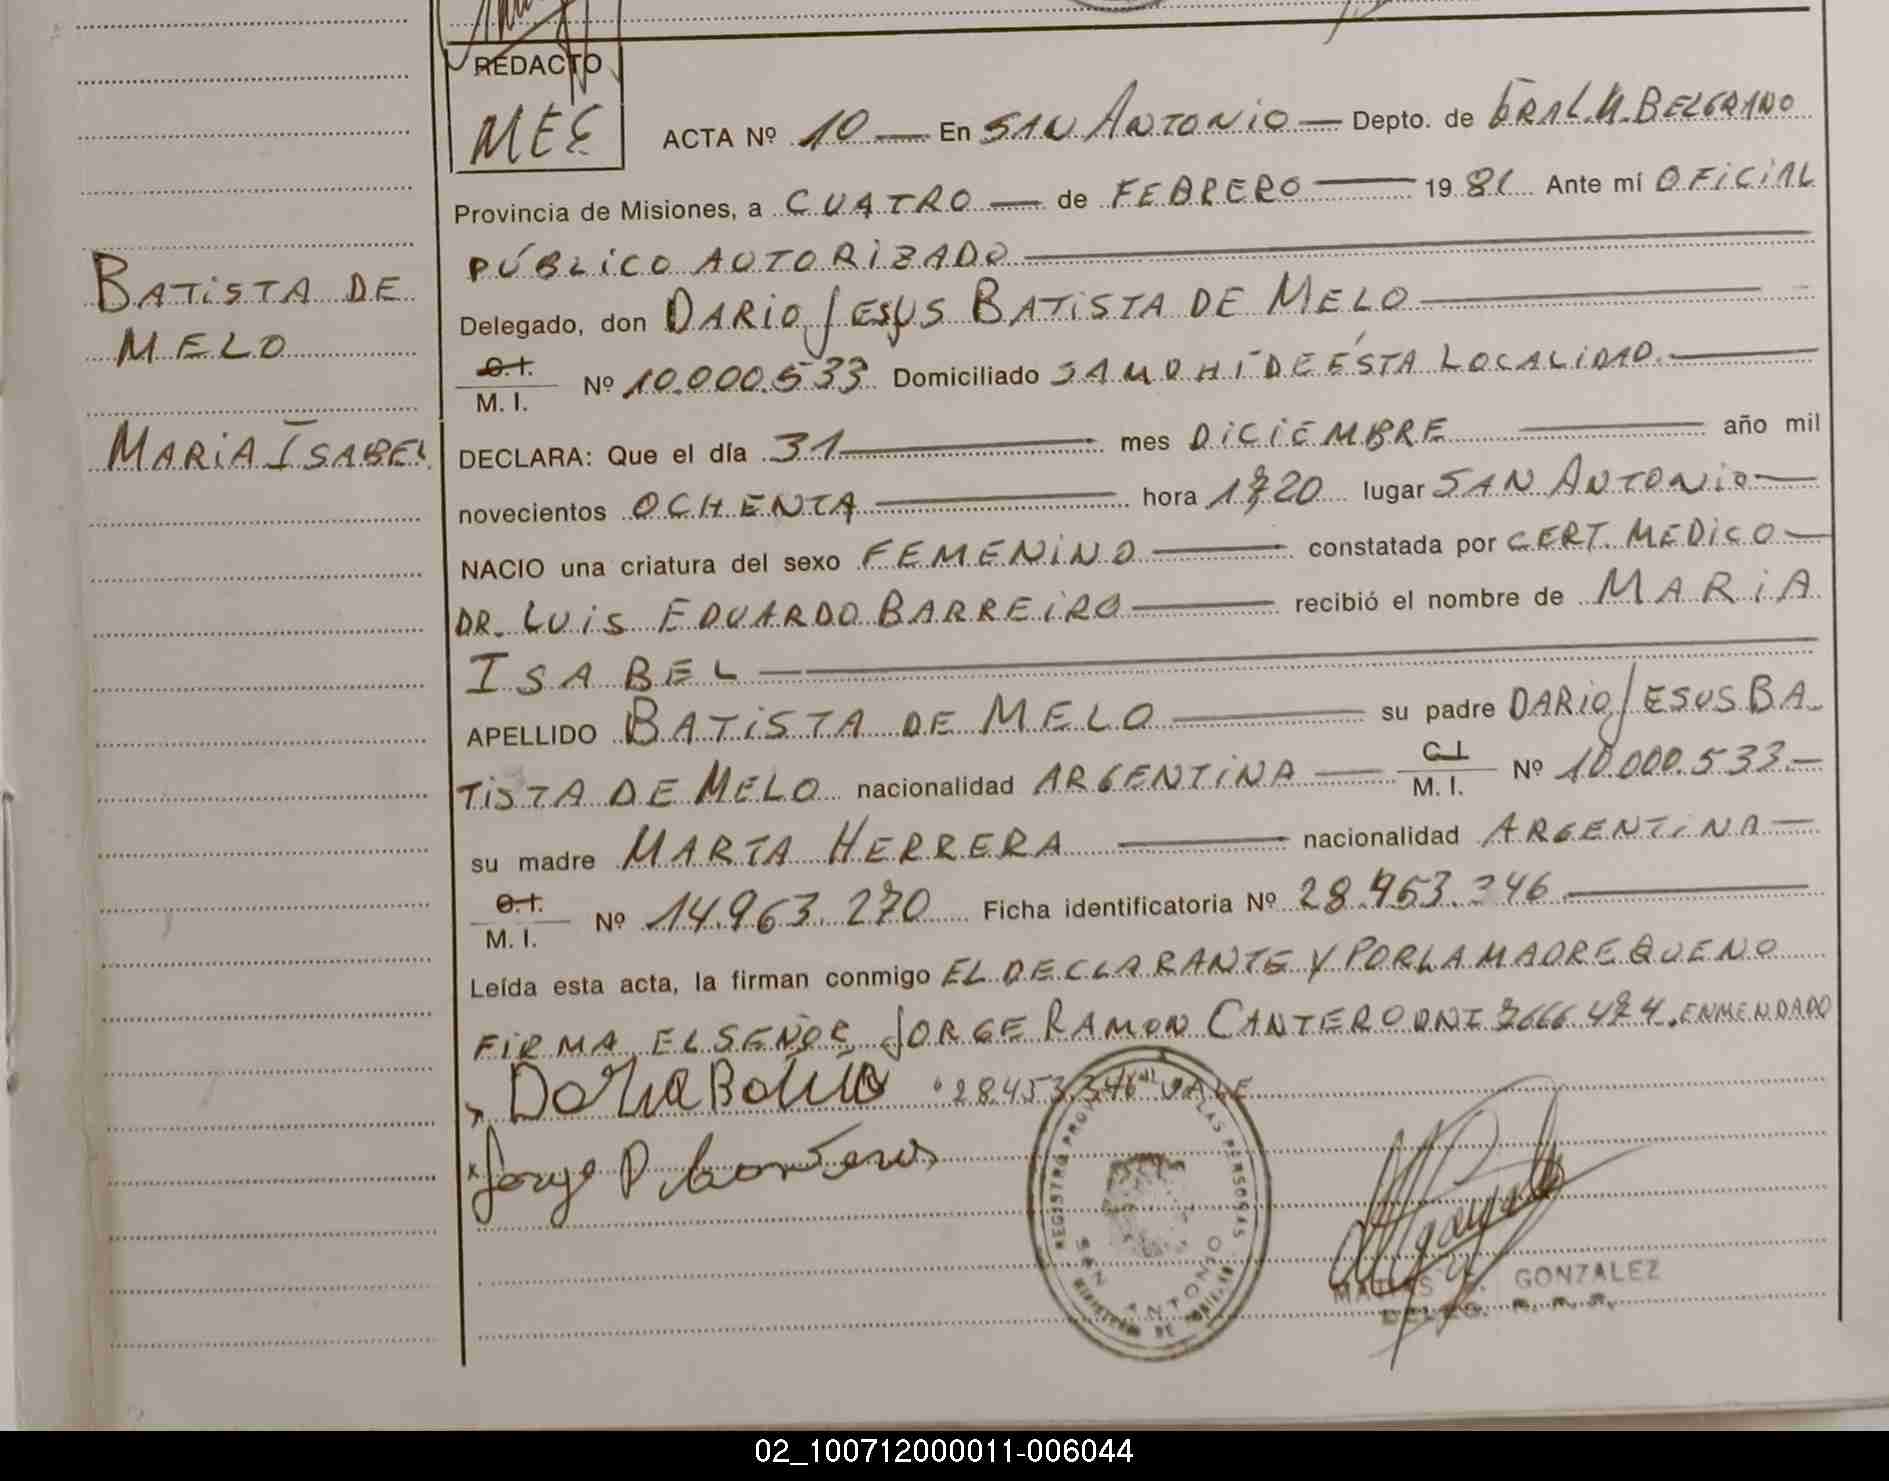 REDACTO
MEE
ACTA Nº 10 — En SAN ANTONIO — Depto. de GRAL. M. BELGRANO
Provincia de Misiones, a CUATRO — de FEBRERO — 1981 Ante mí OFICIAL
PÚBLICO AUTORIZADO —
BATISTA DE
MELO
MARIA ISABEL
Delegado, don DARIO JESUS BATISTA DE MELO —
C.I.
M. I. Nº 10.000.533 Domiciliado SAMOHÍ DE ÉSTA LOCALIDAD. —
DECLARA: Que el día 31 — mes DICIEMBRE — año mil
novecientos OCHENTA — hora 1720 lugar SAN ANTONIO —
NACIO una criatura del sexo FEMENINO — constatada por CERT. MEDICO —
DR. LUIS EDUARDO BARREIRO — recibió el nombre de MARIA
ISABEL —
APELLIDO BATISTA DE MELO — su padre DARIO JESUS BA-
TISTA DE MELO nacionalidad ARGENTINA — C.I.
M. I. Nº 10.000.533.—
su madre MARTA HERRERA — nacionalidad ARGENTINA —
C.I.
M. I. Nº 14.963.270 Ficha identificatoria Nº 28.453.346 —
Leída esta acta, la firman conmigo EL DECLARANTE Y POR LA MADRE QUE NO
FIRMA EL SEÑOR JORGE RAMON CANTERO DNI 7666.474. ENMENDADO
"28453.346" VALE
Jorge R Canteros
REGISTRO PROV LAS PERSONAS
SAN ANTONIO
MINISTERIO DE
GONZALEZ
DELEG. R. P. P.
02_100712000011-006044